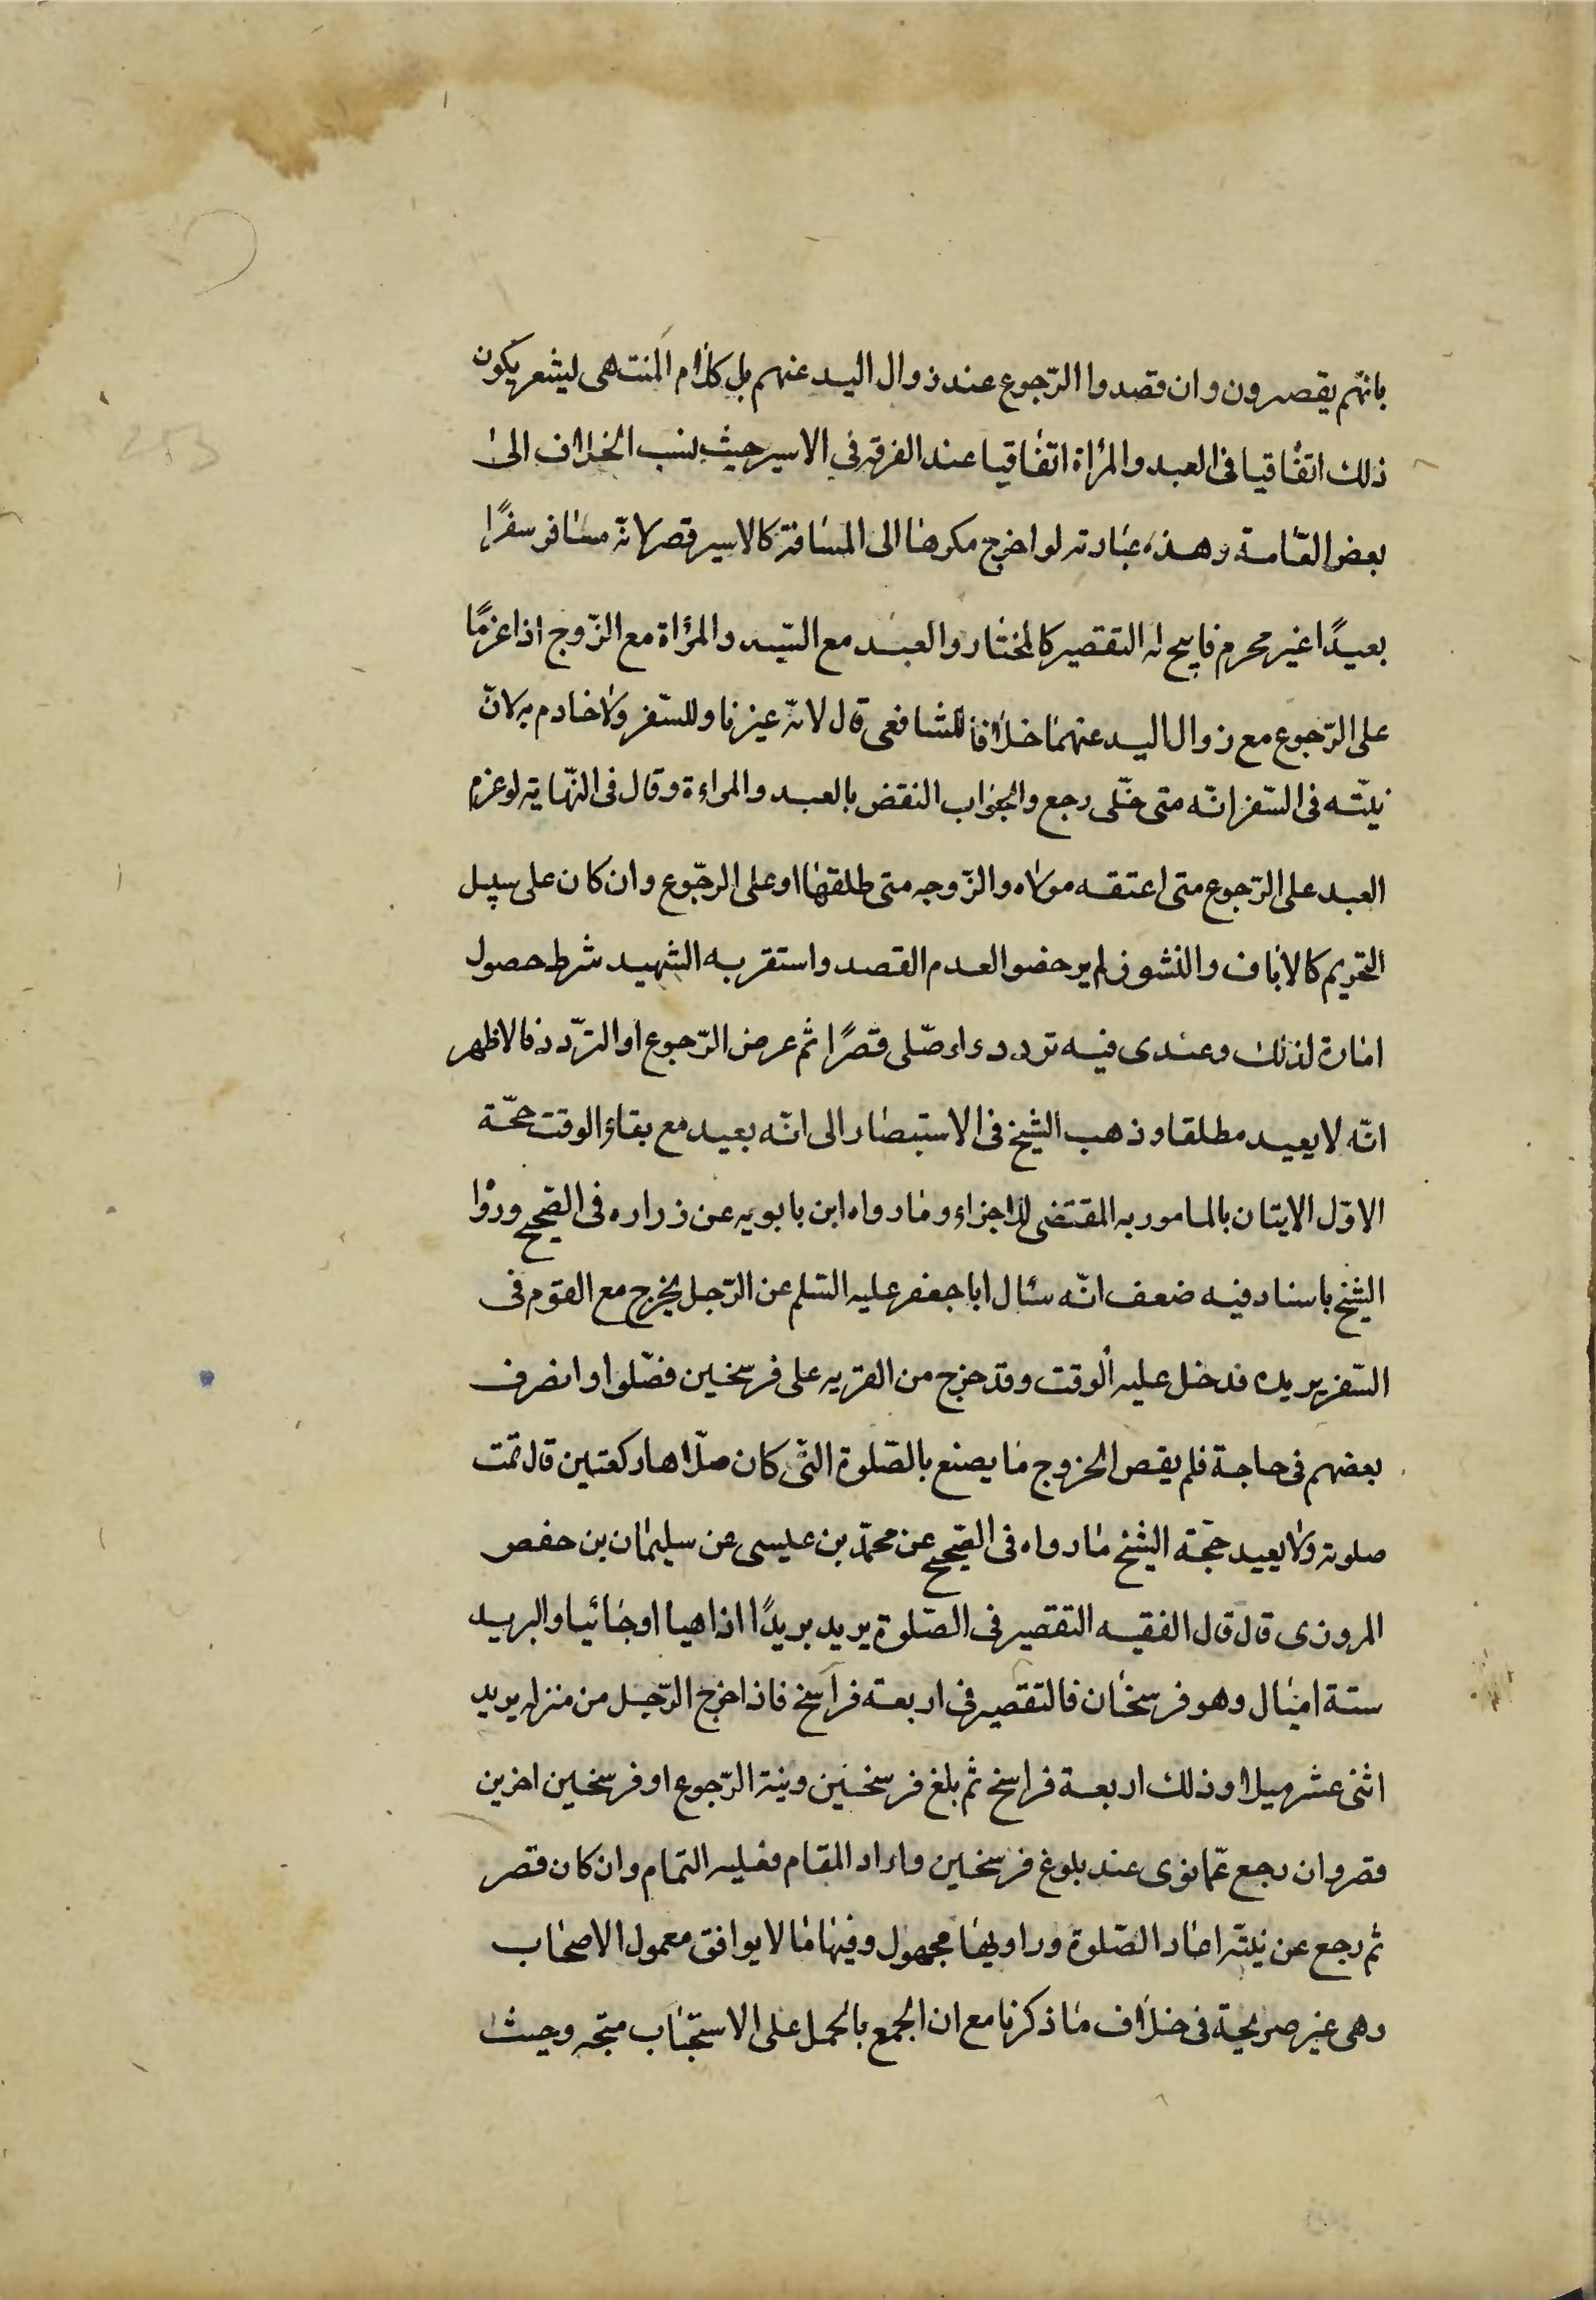 بانهّم يقصرون وان قصدوا الرّجوع عند زوال اليد عنهم بل كلام المنتهى ليشعر بكون
ذلك اتفاقيا فى العبد والمرأة اتفاقيا عند الفرقه في الاسير حيث نسب الخلاف الى
بعض العّامة وهذه عبارته لو اخرج مكرها الى المسافة كالاسير قصر لانّه مسافر سفرًا
بعيدًا غير محرم فابيح له التقصير كالمختار والعبد مع السّيد والمرأة مع الزّوج اذا عزمًا
على الرّجوع مع زوال اليد عنهما خلافا للشافعى قال لانّه غير ناو للسّفر ولا خادم به لانّ
نيتّه فى السّفر انّه متى خلّى رجع والجواب النقض بالعبد والمراءة وقال فى النّهاية لو عزم
العبد على الرّجوع متى اعتقه مولاه والزّوجه متى طلقها او على الرجّوع وان كان على سبيل
التحريم كالاباق والنشوز لم يرخصوا لعدم القصد واستقر به الشهيد شرط حصول
امارة لذلك وعندى فيه تردد ء اء صلّى قصرًا ثم عرض الرّجوع او التردّد فالاظهر
انّه لا يعيد مطلقا وذهب الشيخ فى الاستبصار الى انّه بعيد مع بقاؤ الوقت حجّة
الاوّل الايتان بالمامور به المقتضى للاجزاء وما رواه ابن بابويه عن زراره فى الصّحيح وروٰا
الشيخ باسناد فيه ضعف انّه سئال ابا جعفر عليه السّلم عن الرّجل يخرج مع القوم فى
السّفر يريده فدخل عليه الوقت وقد خرج من القريه على فرسخين فصّلوا وانصرف
بعضهم فى حاجة فلم يقص الخروج ما يصنع بالصّلوة الّتى كان صلّاها ركعتين قال تمّت
صلوته ولا يعيد حجّة الشيخ ما رواه فى الصّحيح عن محمّد بن عيسى عن سليمان بن حفص
المروزى قال قال الفقيه التقصير فى الصّلوة يريد بريدًا اذاهبا او جائيا والبريد
ستة اميال وهو فرسخان فالتقصير فى اربعة فراسخ فاذا خرج الرّجل من منزله يريد
اثنى عشر ميلا وذلك اربعة فراسخ ثم بلغ فرسخين ونية الرّجوع او فرسخين اخرين
قصر وان رجع عمّا نوى عند بلوغ فرسخين واراد المقام فعليه التمام وان كان قصر
ثم رجع عن نيتّه اعاد الصّلوة وراويها مجهول وفيها ما لا يوافق معمول الاصحاب
وهى غير صريحة فى خلاف ما ذكرنا مع ان الجمع بالحمل على الاستحباب متجّه وحيث